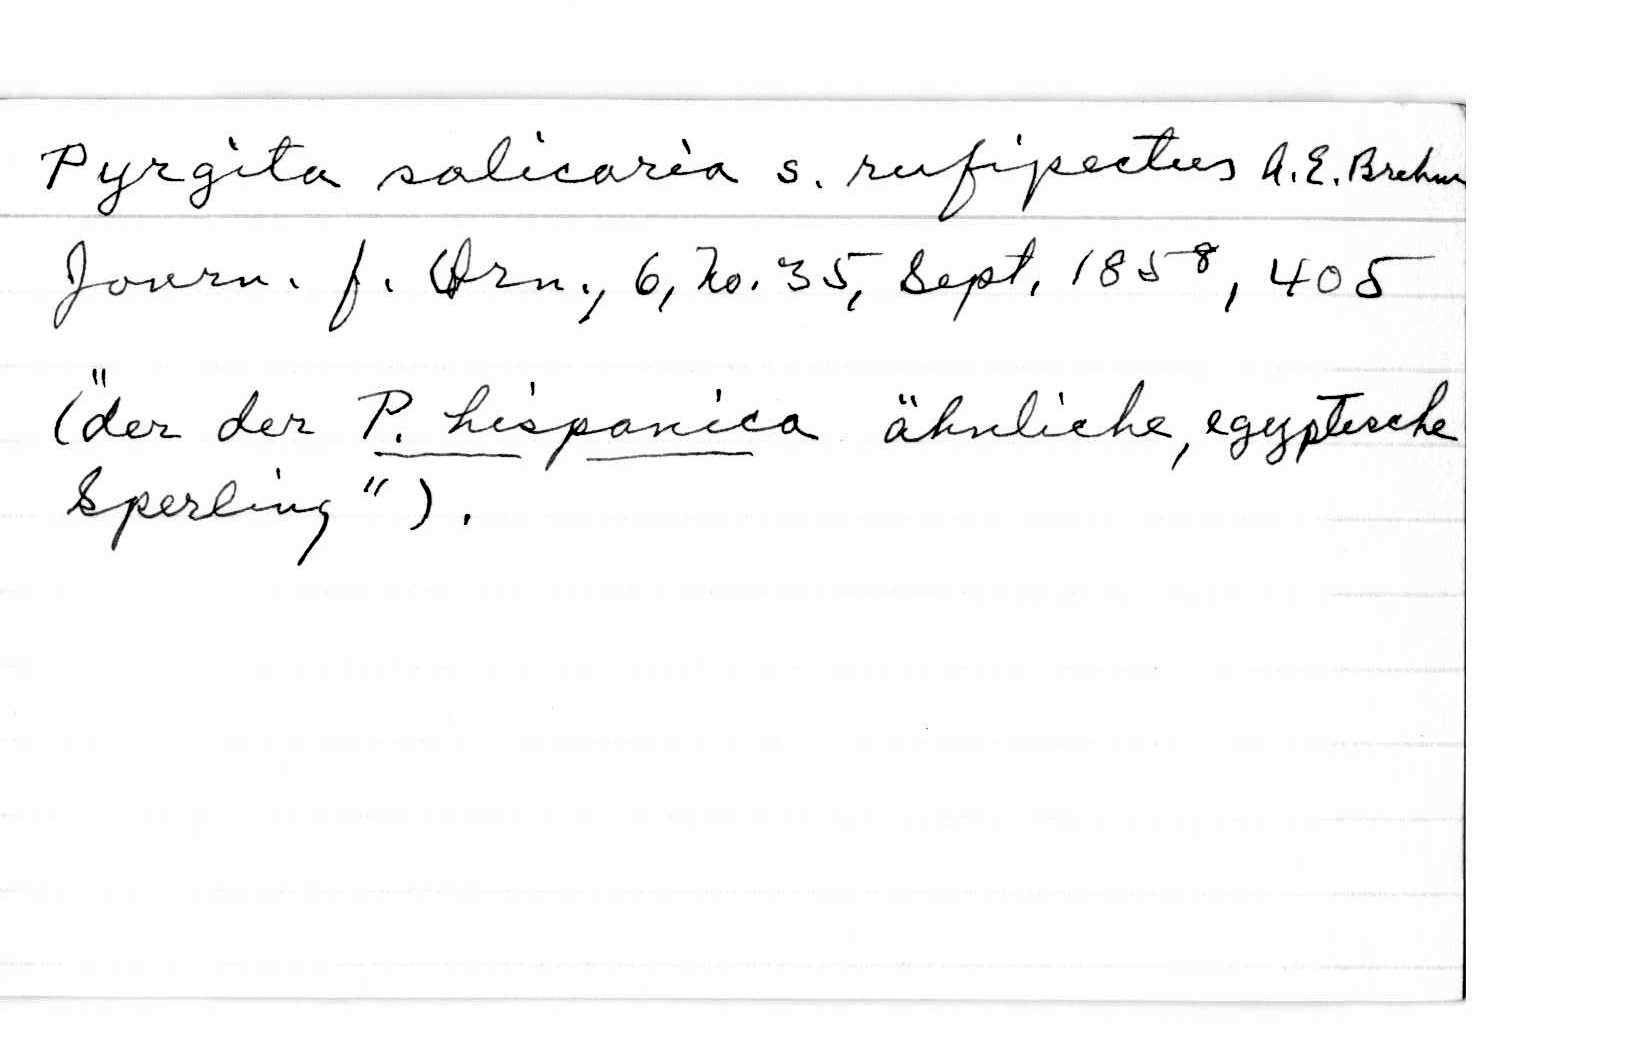 Pyrgita salicaria s. rufipectus A.E. Brehm
Journ. f. Orn., 6, No. 35, Sept, 1858, 405
("der der P. hispanica ähnliche, egyptische
Sperling").